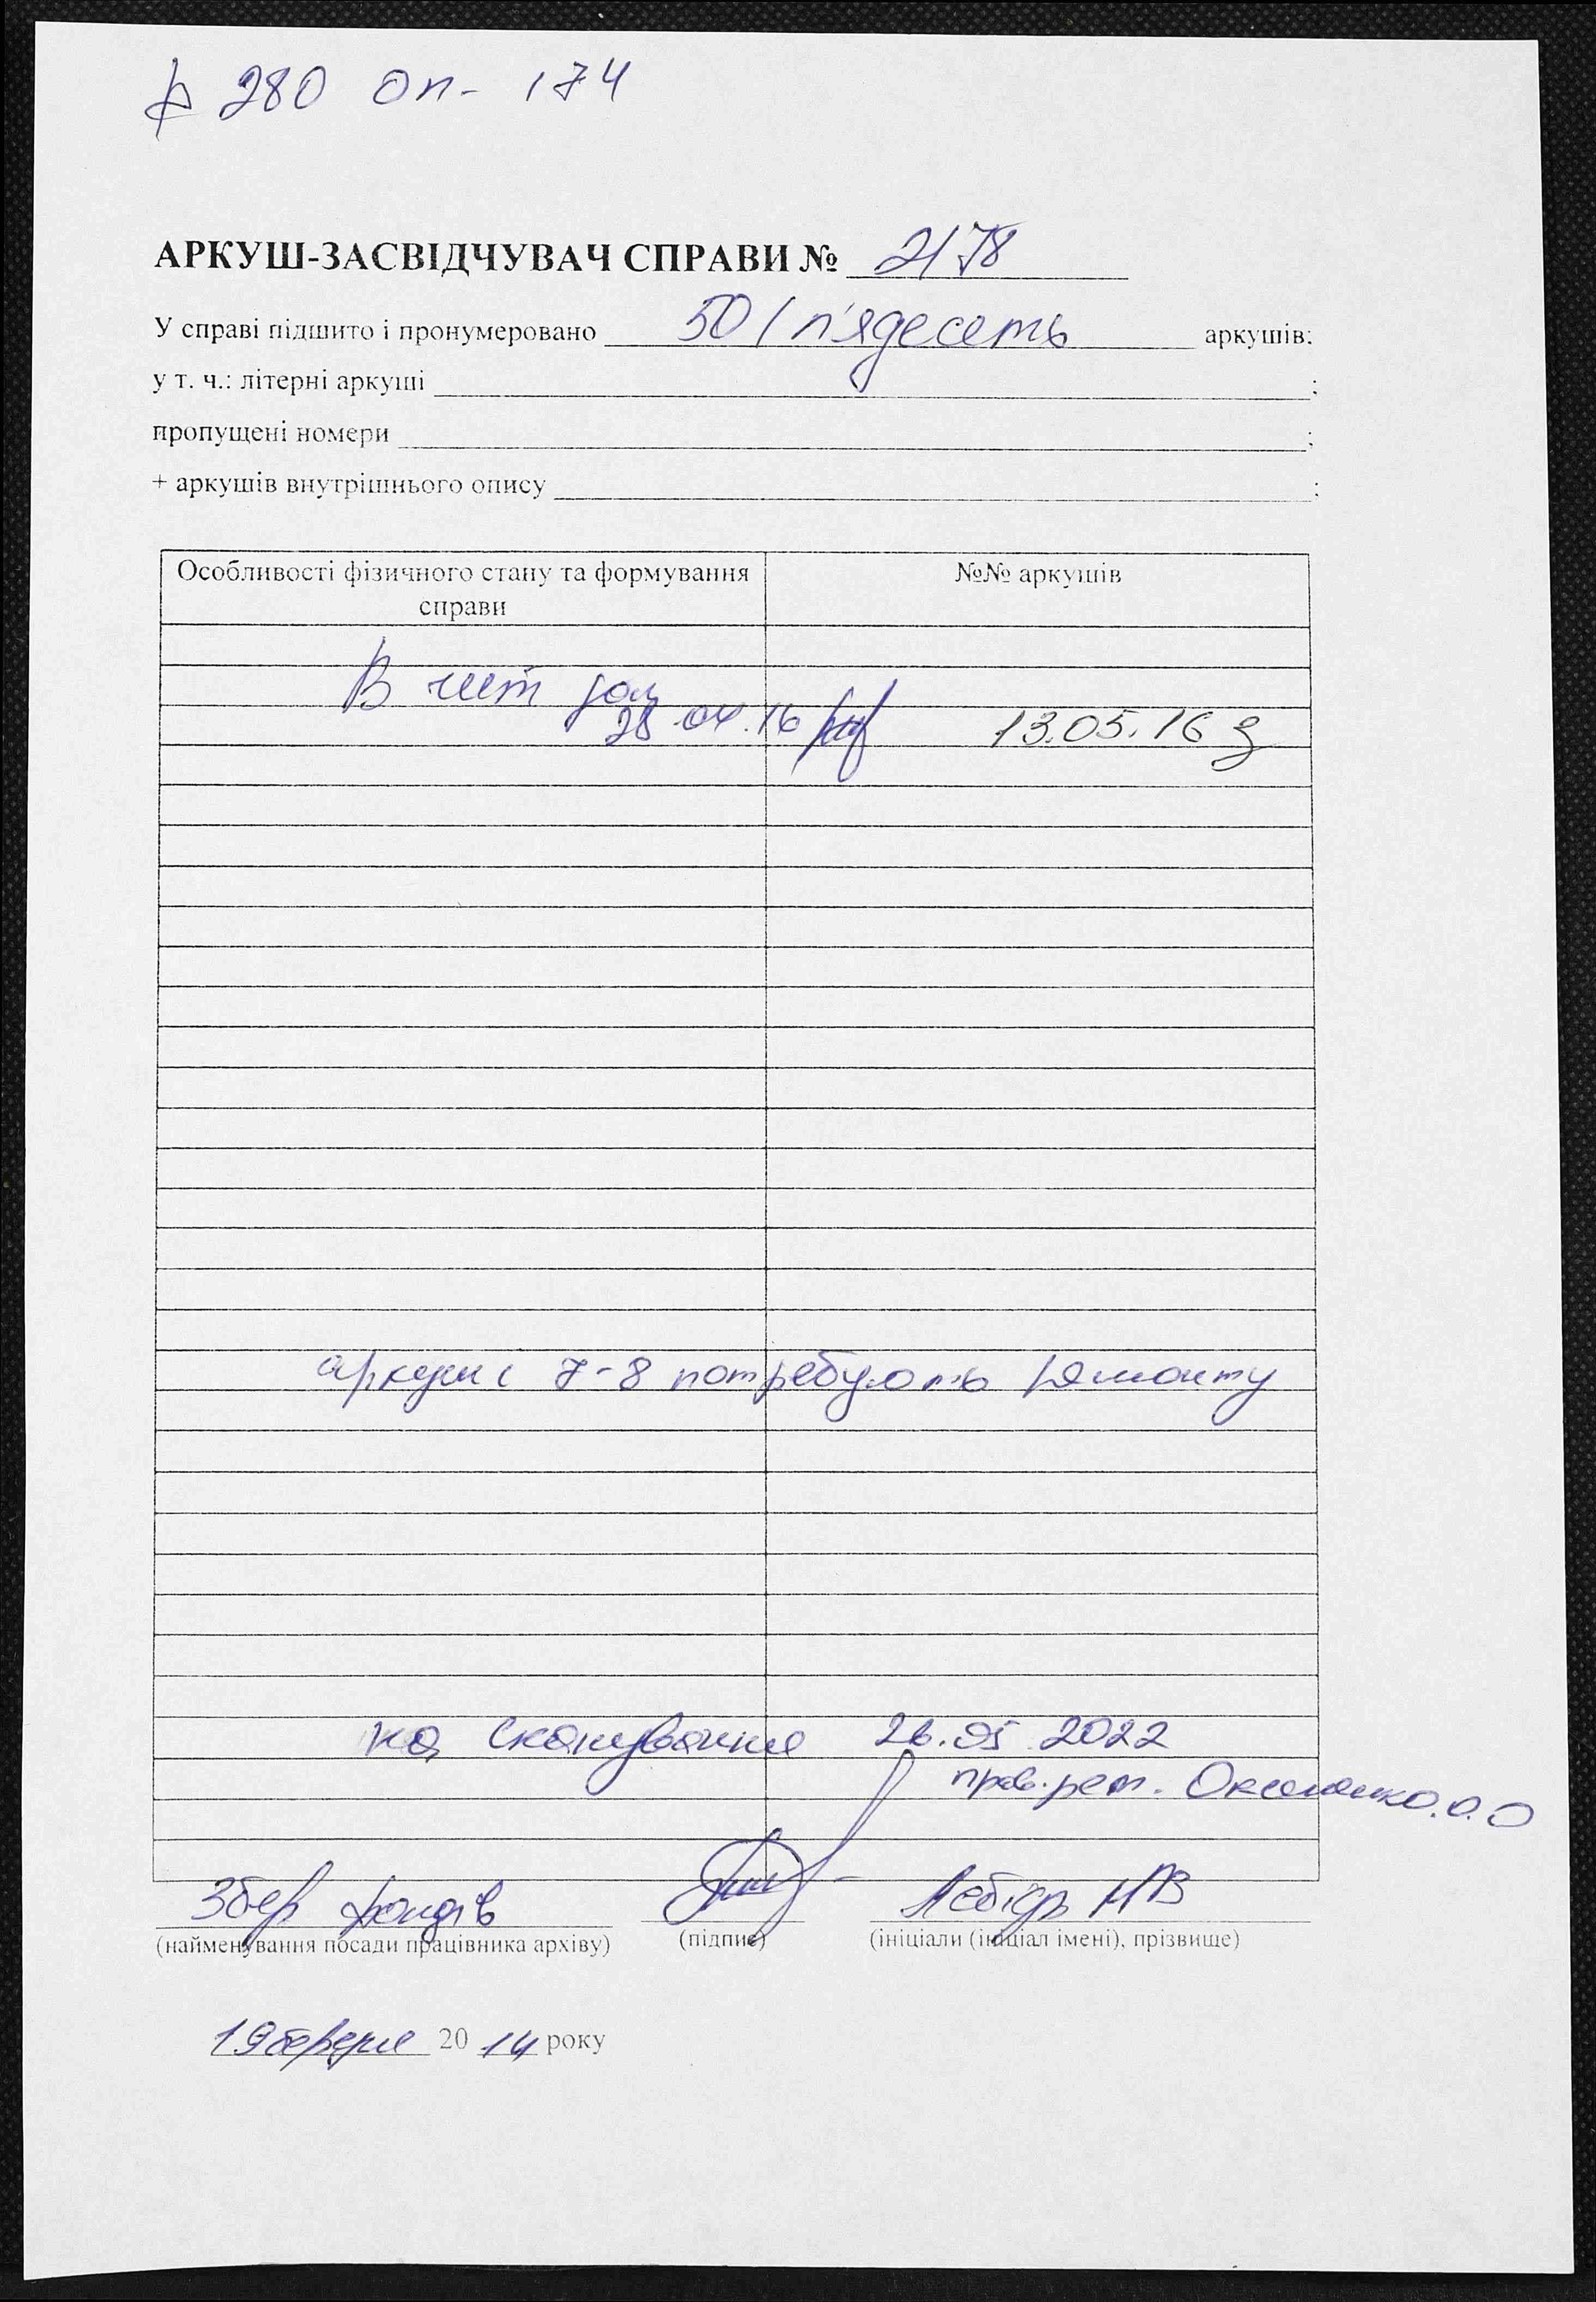 ф 280 оп- 174
АРКУШ-ЗАСВІДЧУВАЧ СПРАВИ № 2178
У справі підшито і пронумеровано 50 / п'ядесеть аркушів;
у т. ч.: літерні аркуші ;
пропущені номери ;
+ аркушів внутрішнього опису ;
Особливості фізичного стану та формування справи
№№ аркушів
В чит зал
28.04.16 13.05.16
аркуші 7-8 потребують ремонту
на сканування 26.05 2022
О.О
Збер фондів Лебідь НВ
(найменування посади працівника архіву) (підпис) (ініціали (ініціал імені), прізвище)
19 березня 20 14 року